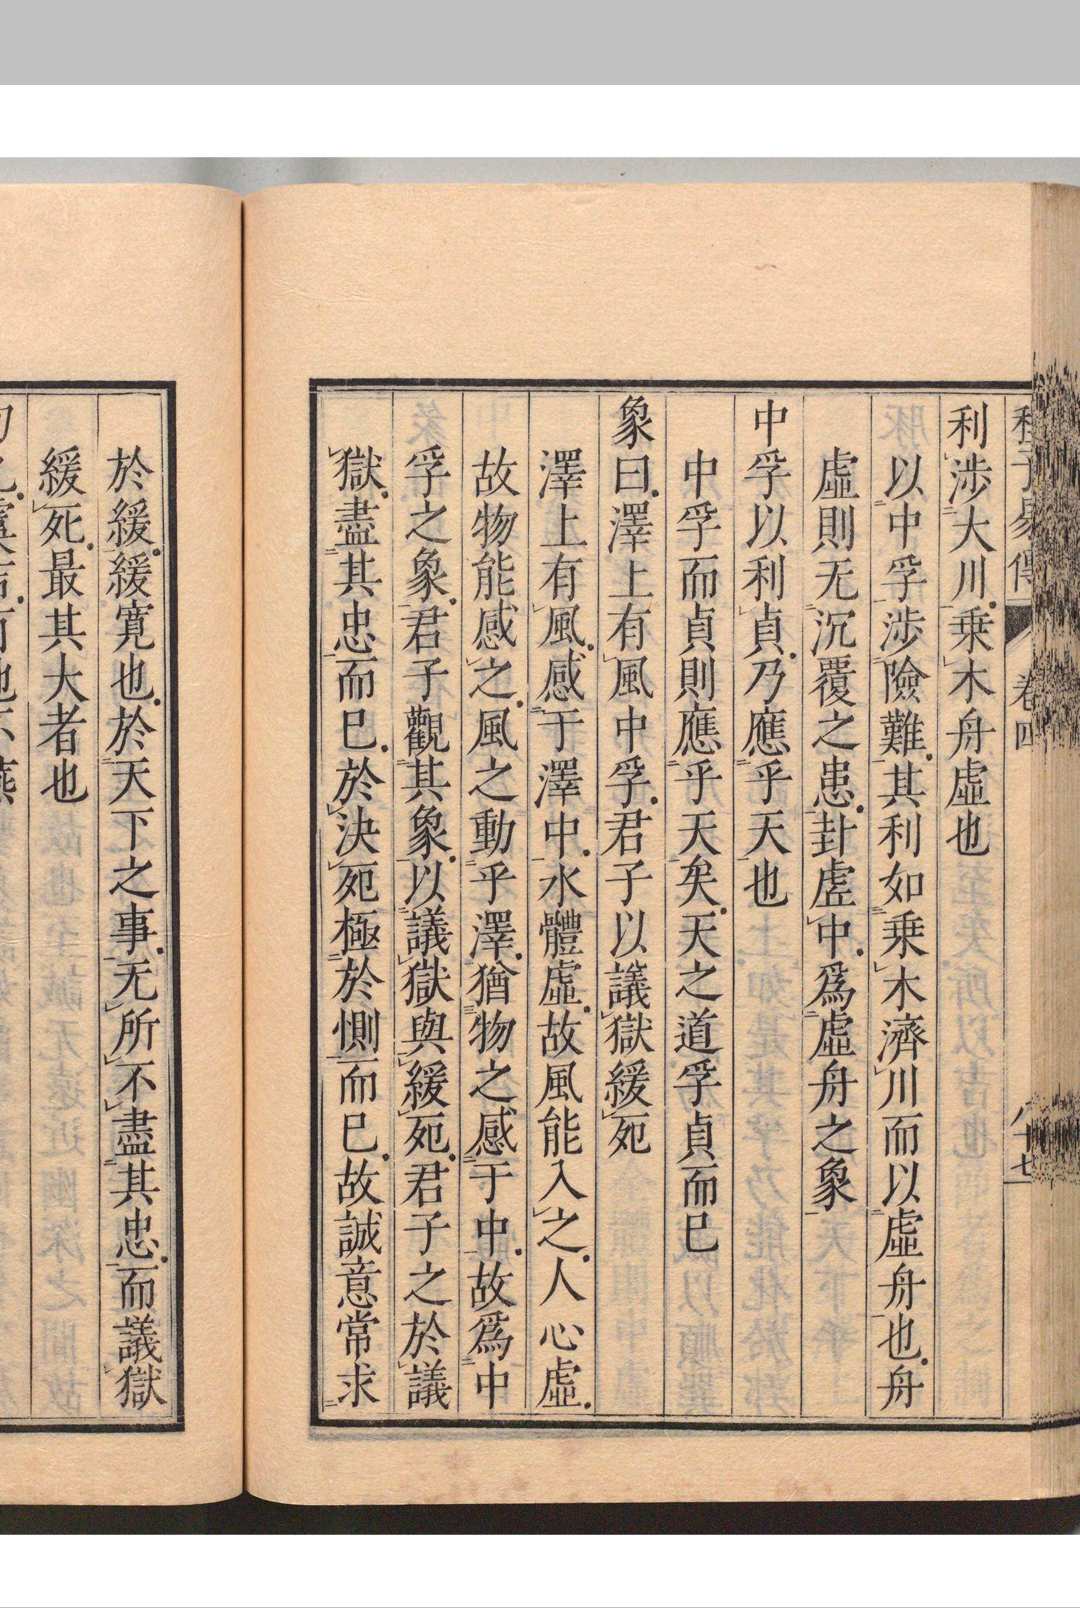 利涉大川乗木舟虛也
以中孚涉險難其利如乗木濟川而以虛舟也舟
虛則无沉覆之患封虗中爲虛舟之象
中孚以利貞乃應乎天也
中孚而貞則應乎天矣天之道孚貞而巳
象曰澤上有風中孚君子以議獄緩死
澤上有風感于澤中水體虛故風能入之人心虛
故物能感之風之動乎澤猶物之感于中故爲中
孚之象君子觀其象以議獄與緩死君子之於議
獄盡其忠而巳於決死極於惻而巳故誠意常求
於緩緩寛也於天下之事无所不盡其忠而議獄
緩死最其大者也
卷四